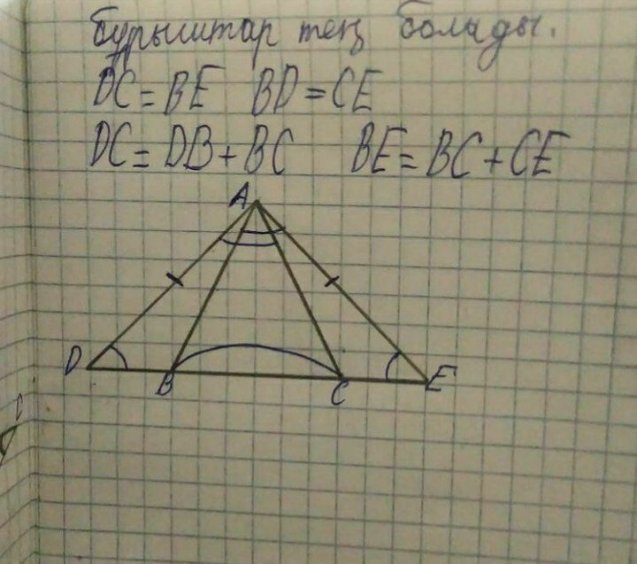 бұрыштар тең болады.
DC = BE BD = CE
DC = DB + BC BE = BC + CE
A
D B C E